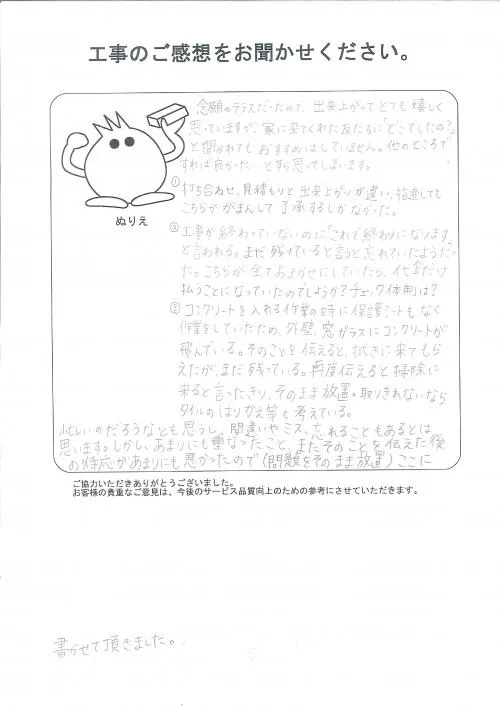 工事のご感想をお聞かせください。
念願のテラスだったので、出来上がってとても嬉しく
思っていますが、家に来てくれた友だちに「どこでしたの?」
と聞かれてもおすすめはしていません。他のところで
すれば良かった…とすら思ってしまいます。
①打ち合わせ、見積もりと出来上がりが違い、指摘しても
こちらががまんして了承するしかなかった。
②工事が終わっていないのに「これで終わりになります」
と言われる。まだ残っていると言うと忘れていたようだっ
た。こちらが全ておまかせにしていたら、代金だけ
払うことになっていたのでしょうか?チェック体制は?
③コンクリートを入れる作業の時に保護シートもなく
作業をしていたため、外壁、窓ガラスにコンクリートが
飛んでいる。そのことを伝えると、拭きに来てもら
えたが、まだ残っている。再度伝えると掃除に
来ると言ったきり、そのまま放置。取りきれないなら
タイルのはりかえ等も考えている。
忙しいのだろうなとも思うし、間違いやミス、忘れることもあるとは
思います。しかし、あまりにも重なったこと、またそのことを伝えた後
の対応があまりにも悪かったので(問題をそのまま放置)ここに
ぬりえ
ご協力いただきありがとうございました。
お客様の貴重なご意見は、今後のサービス品質向上のための参考にさせていただきます。
書かせて頂きました。